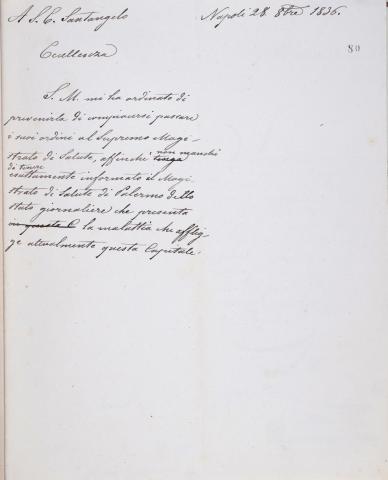 A S. E. Santangelo
Napoli 28. 8bre 1836.
80
Eccellenza
S. M. mi ha ordinato di
prevenirla di compiacersi passare
i suoi ordini al Supremo Magi-
strato di Salute, affinchè tenga non manchi
di tenere
esattamente informato il Magi
strato di Salute di Palermo dello
stato giornaliere che presenta
in questa C la malattia che afflig-
ge attualmente questa Capitale.